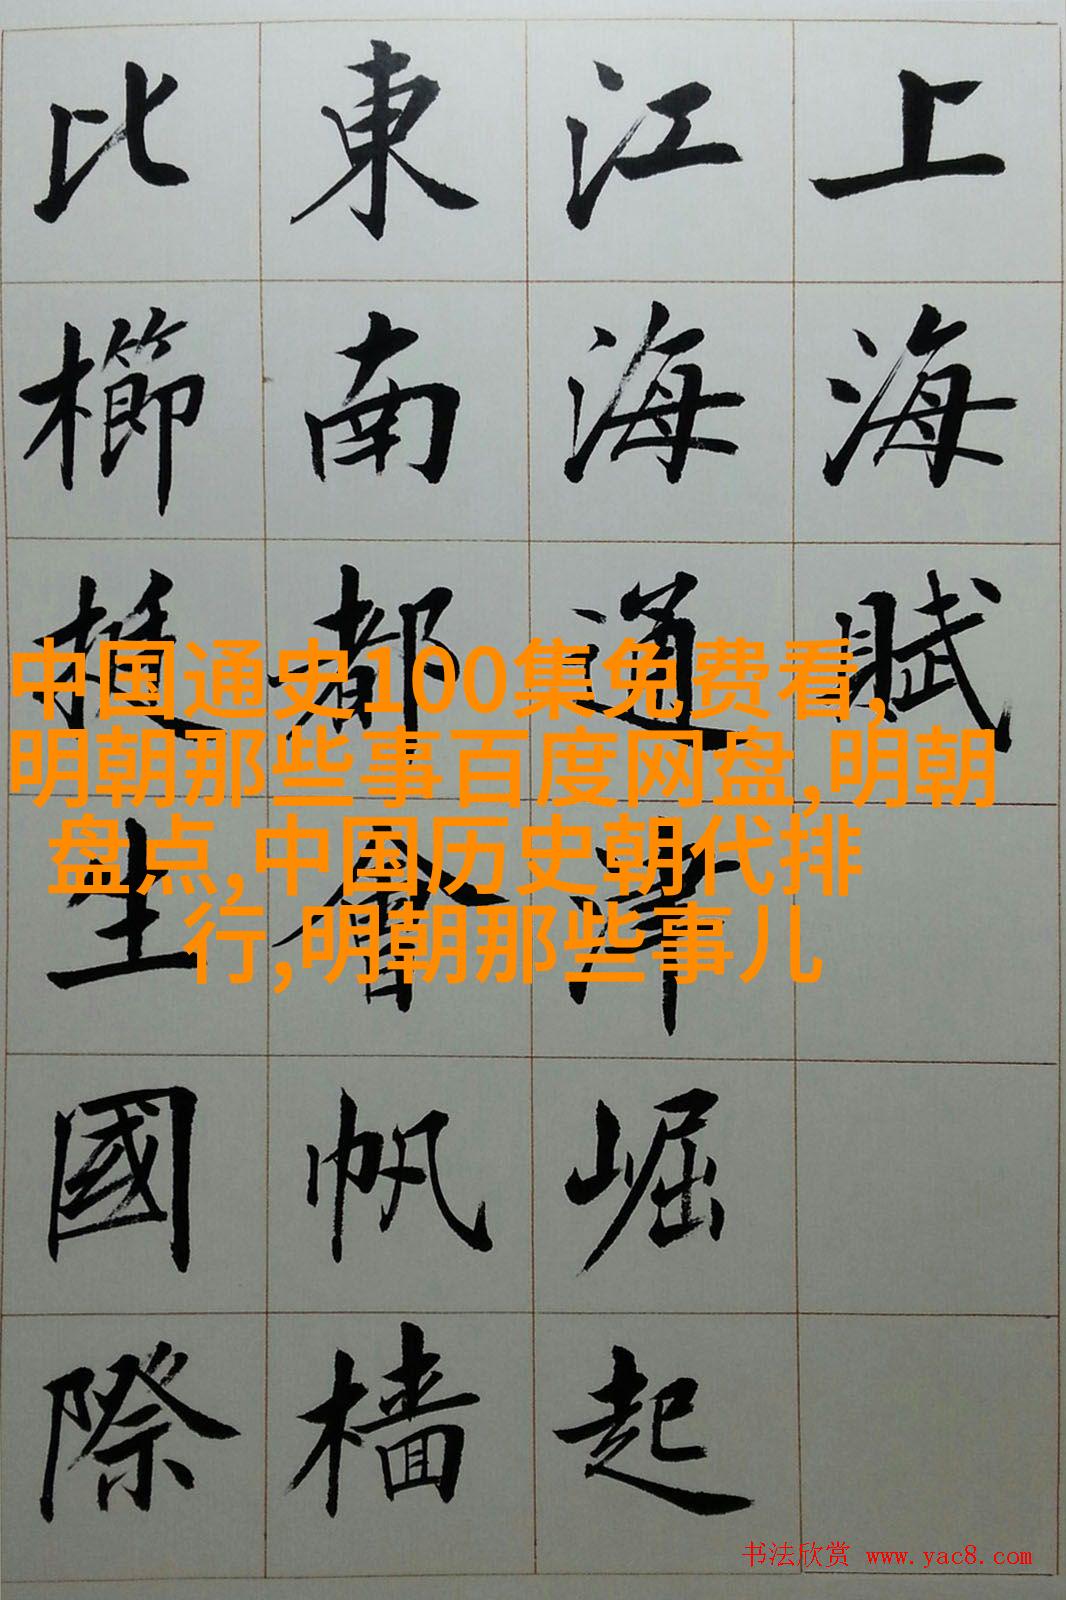 上海賦
江海通津崛起
東南都會帆檣
比櫛挺生國際
中国通史100集免费看,
明朝那些事百度网盘,明朝
盘点,中国历史朝代排
行,明朝那些事儿
书法欣赏 www.yac8.com